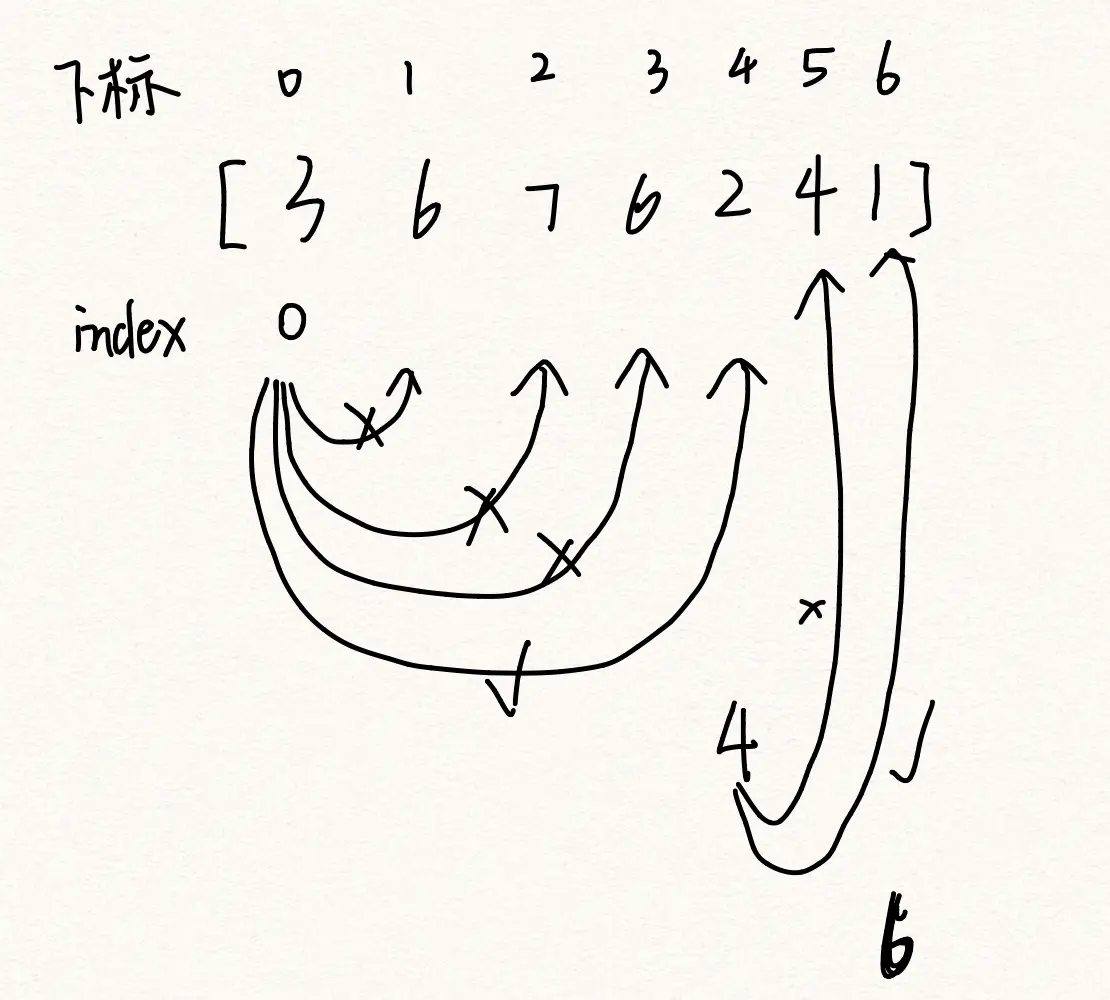 下标 0 1 2 3 4 5 6
[ 3 6 7 6 2 4 1 ]
index 0
4
6